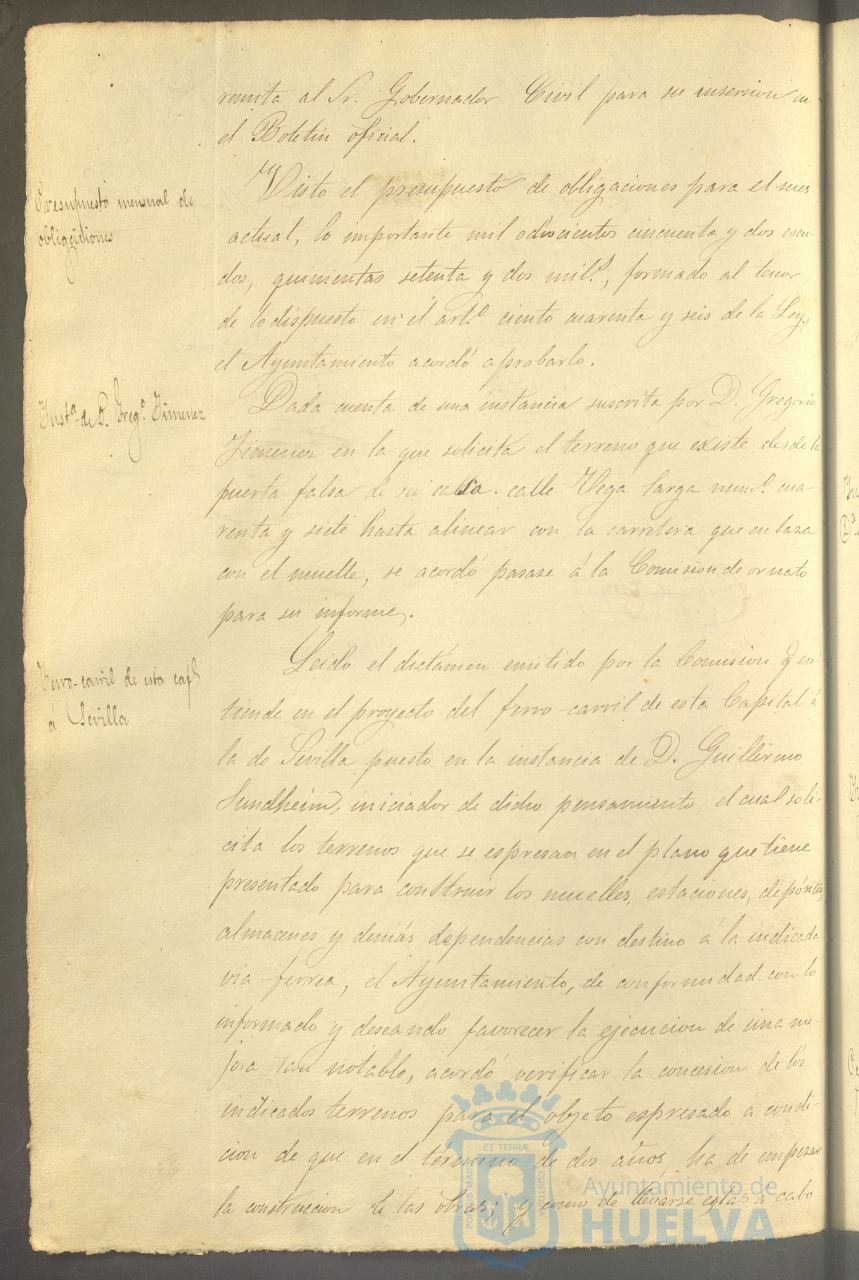 remita al Sr. Gobernador Civil para su insercion en
el Boletin oficial.
Presupuesto mensual de
obligaciones
Visto el presupuesto de obligaciones para el mes
actual, lo importante mil odoscientos cincuenta y dos escu-
dos, quinientas setenta y dos mil.s, formado al tenor
de lo dispuesto en el art.o ciento cuarenta y seis de la Ley,
el Ayuntamiento acordó aprobarlo.
Inst.a de D. Greg.o Jimenez
Dada cuenta de una instancia suscrita por D. Gregorio
Jimenez en la que solicita el terreno que existe desde la
puerta falsa de su casa calle Vega larga num.o cua-
renta y siete hasta alinear con la carretera que enlaza
con el muelle, se acordó pasase á la Comision de ornato
para su informe.
Ferro-carril de esta cap.l
á Sevilla
Leido el dictámen emitido por la Comision q en-
tiende en el proyecto del ferro-carril de esta Capital á
la de Sevilla puesto en la instancia de D. Guillermo
Sundheim, iniciador de dicho pensamiento, el cual soli-
cita los terrenos que se espresan en el plano que tiene
presentado para construir los muelles, estaciones, depósitos,
almacenes y demás dependencias con destino á la indicada
via ferrea, el Ayuntamiento, de conformidad con lo
informado y deseando favorecer la ejecucion de una me-
jora tan notable, acordó verificar la concesion de los
indicados terrenos para el objeto espresado á condi-
cion de que en el término de dos años, ha de empezar
la construccion de las obras; y como de llevarse estas á cabo
PORTUS MARIS
ET TERRÆ
CUSTODIA
Ayuntamiento de
HUELVA